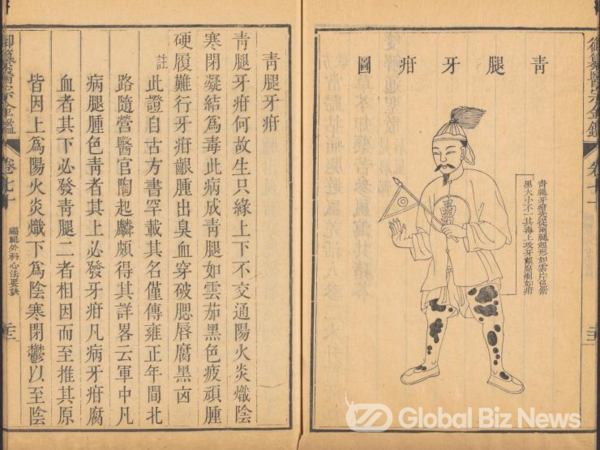 青腿牙疳圖
青腿牙疳
從兩腿起形如雲片色
黑大小不一其毒上攻牙齦
青腿牙疳
青腿牙疳何故生只緣上下不交通陽火炎熾陰
寒閉凝結爲毒此病成青腿如雲茄黑色疲頑腫
硬履難行牙疳齦腫出臭血穿破腮唇腐黑凶
註此證自古方書罕載其名僅傳雍正年間北
路隨營醫官陶起麟頗得其詳畧云軍中凡
病腿腫色青者其上必發牙疳凡病牙疳腐
血者其下必發青腿二者相因而至推其原
皆因上爲陽火炎熾下爲陰寒閉鬱以至陰
御纂醫宗金鑑
編輯外科心法要訣
Global Biz News